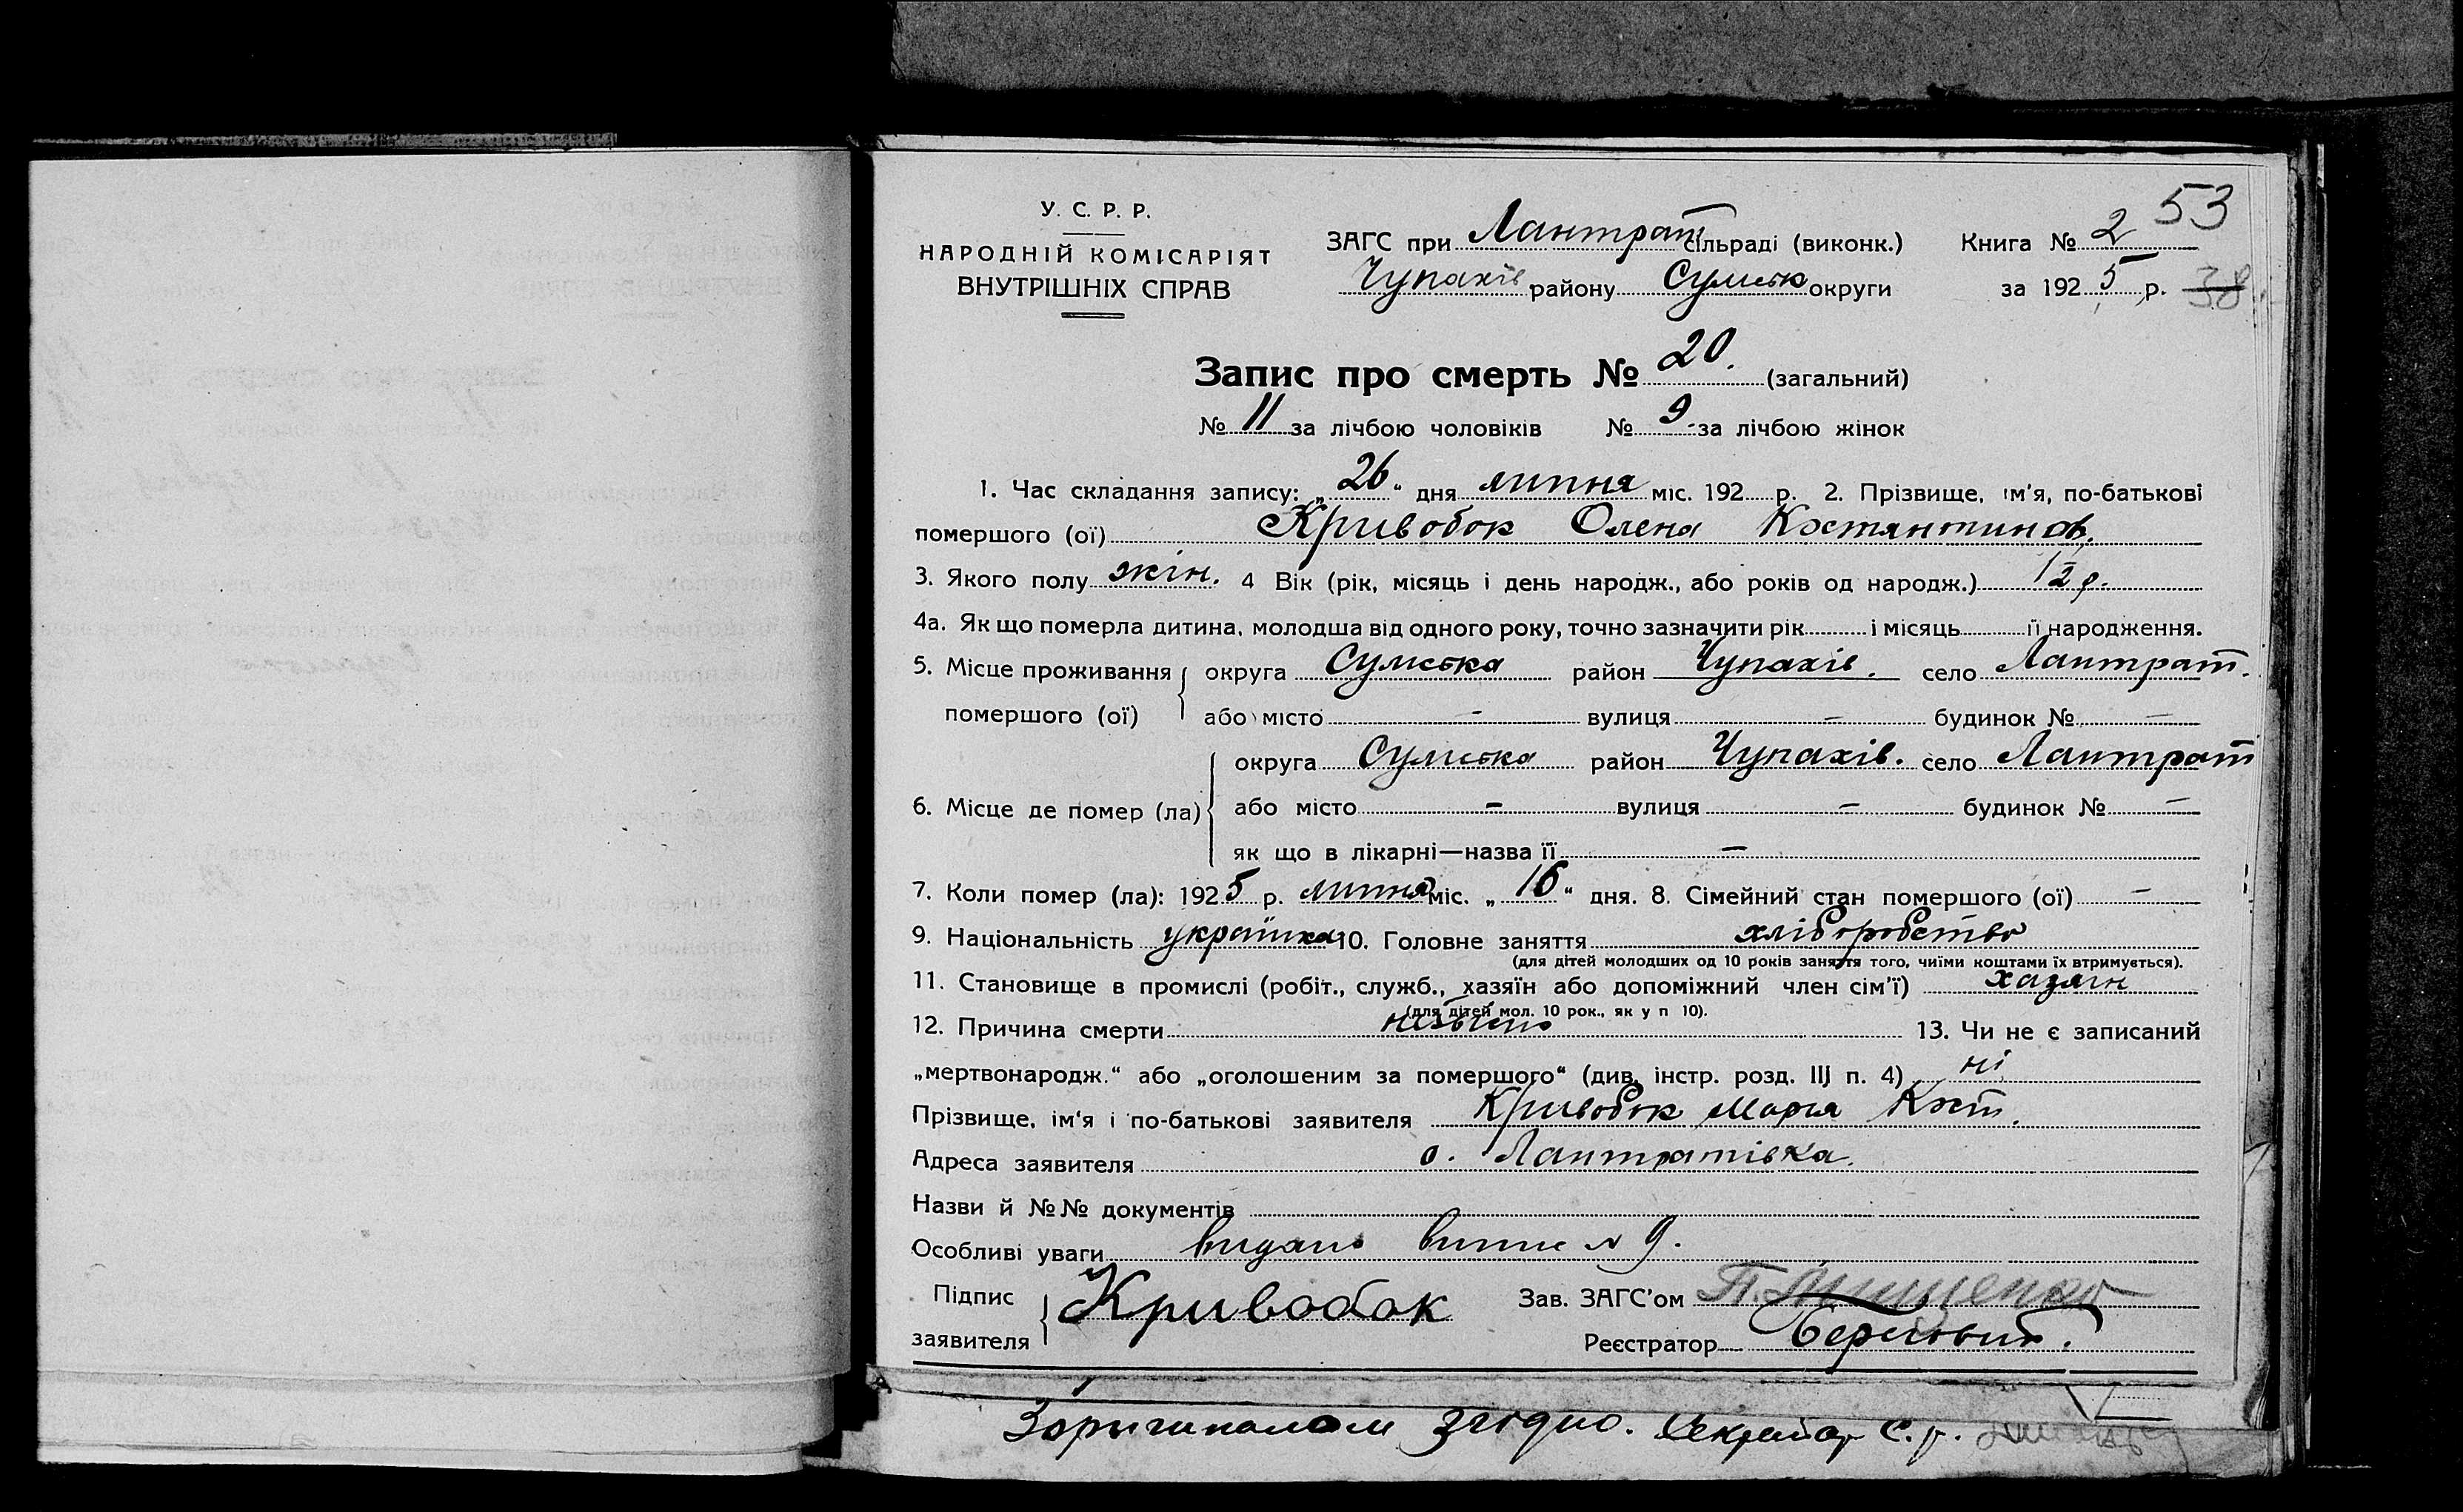 53
У. С. Р. Р.
НАРОДНІЙ КОМІСАРІЯТ
ВНУТРІШНІХ СПРАВ
ЗАГС при Лантрат сільраді (виконк.) Книга № 2
Чупахів району Сумськ округи за 1925 р. 38
Запис про смерть № 20. (загальний)
№ 11 за лічбою чоловіків № 9 за лічбою жінок
1. Час складання запису: „26“ дня липня міс. 192 р. 2. Прізвище, ім'я, по-батькові
помершого (ої) Кривобок Олена Костянтинов.
3. Якого полу жін. 4 Вік (рік, місяць і день народж., або років од народж.) 12 р.
4а. Як що померла дитина, молодша від одного року, точно зазначити рік і місяць її народження.
5. Місце проживання помершого (ої) округа Сумська район Чупахів. село Лантрат.
або місто — вулиця — будинок № —
6. Місце де помер (ла) округа Сумська район Чупахів. село Лантрат
або місто — вулиця — будинок № —
як що в лікарні—назва її —
7. Коли помер (ла): 1925 р. липня міс. „16“ дня. 8. Сімейний стан помершого (ої) —
9. Національність українка 10. Головне заняття хліборобство
(для дітей молодших од 10 років заняття того, чиїми коштами їх втримується).
11. Становище в промислі (робіт., служб., хазяїн або допоміжний член сім'ї) хазяін
(для дітей мол. 10 рок., як у п 10).
12. Причина смерти 13. Чи не є записаний
„мертвонародж.“ або „оголошеним за помершого“ (див. інстр. розд. III п. 4) ні
Прізвище, ім'я і по-батькові заявителя Кривобок Марія Кост.
Адреса заявителя с. Лантратівка.
Назви й №№ документів
Особливі уваги видано випис № 9.
Підпис заявителя Кривобок Зав. ЗАГС'ом
Реєстратор
Зоригиналом згідно. Секретар С. р.